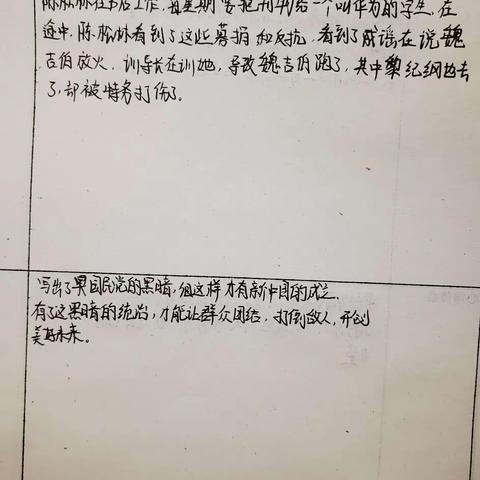 陈松林在书店工作,每星期要把刊物给一个叫作为的学生,在
途中,陈松林看到了这些募捐和反抗,看到了成瑶在说魏
吉伯放火,训导长在训她,导致魏吉伯跑了,其中黎纪纲也去
了,却被特务打伤了。
写出了果国民党的黑暗,但这样才有新中国的成立.
有了这黑暗的统治,才能让群众团结,打倒敌人,开创
美好未来。